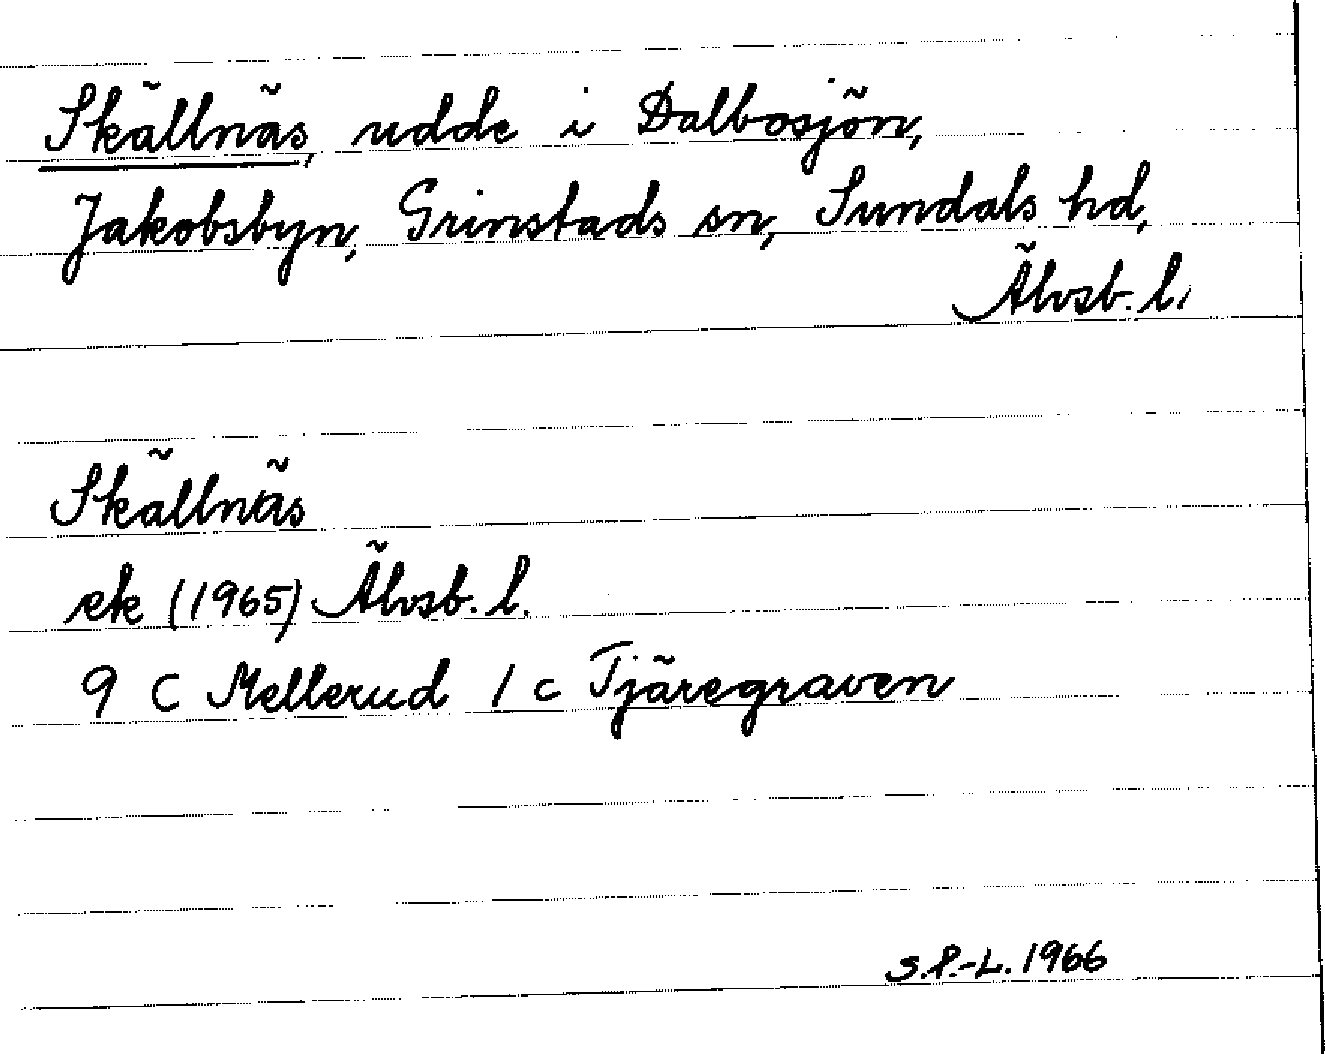 Skällnäs, udde i Dalbosjön,
Jakobsbyn, Grinstads sn, Sundals hd,
Älvsb. l.
Skällnäs
ek (1965) Älvsb. l.
9 C Mellerud 1 c Tjäregraven
S.P.-L. 1966